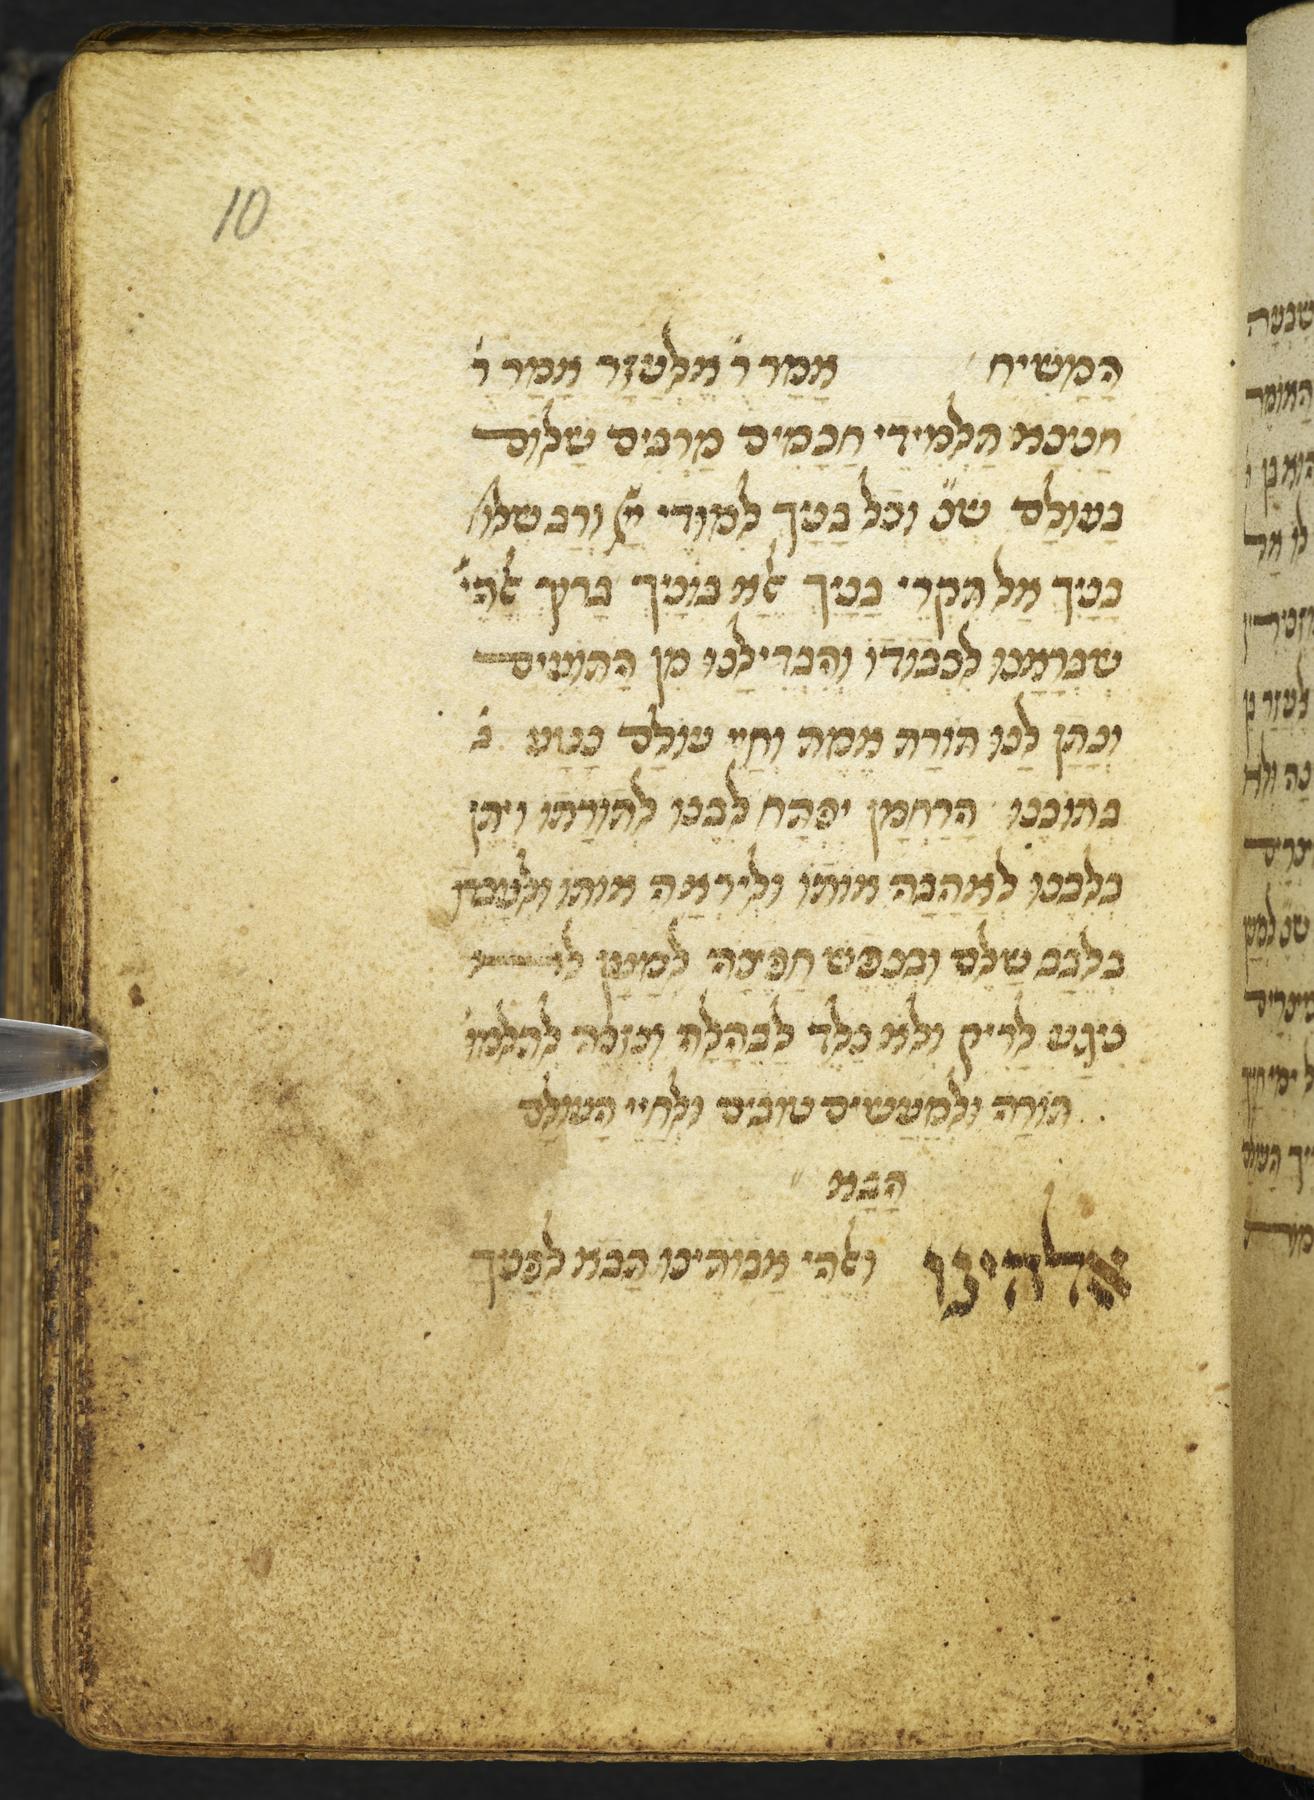 10
הַמָּשִׁיחַ אָמַר ר' אֶלְעָזָר אָמַר ר'
חֲנִינָא תַלְמִידֵי חֲכָמִים מַרְבִּים שָׁלוֹם
בָּעוֹלָם שנ' וְכָל בָּנַיִךְ לִמּוּדֵי יי' וְרַב שְׁלוֹ
בָּנָיִךְ אַל תִּקְרֵי בָּנַיִךְ אֶלָּא בּוֹנַיִךְ בָּרוּךְ אֱלֹהֵי'
שֶׁבְּרָאָנוּ לִכְבוֹדוֹ וְהִבְדִּילָנוּ מִן הַתּוֹעִים
וְנָתַן לָנוּ תּוֹרַת אֱמֶת וְחַיֵּי עוֹלָם נָטַע ב'
בְּתוֹכֵנוּ הָרַחֲמָן יִפְתַּח לִבֵּנוּ לְתוֹרָתוֹ וְיִתֵּן
בְּלִבֵּנוּ לְאַהֲבָה אוֹתוֹ וּלְיִרְאָה אוֹתוֹ וּלְעָבְדוֹ
בְּלֵבָב שָׁלֵם וּבְנֶפֶשׁ חֲפֵיצָה לְמַעַן לֹא
נִיגַע לָרִיק וְלֹא נֵלֵד לַבֶּהָלָה וְנִזְכֶּה לְתַלְמוּ'
תּוֹרָה וּלְמַעֲשִׂים טוֹבִים וּלְחַיֵּי הָעוֹלָם
הַבָּא
אלהינו וֵאלֹהֵי אֲבוֹתֵינוּ תָּבֹא לְפָנֶיךָ